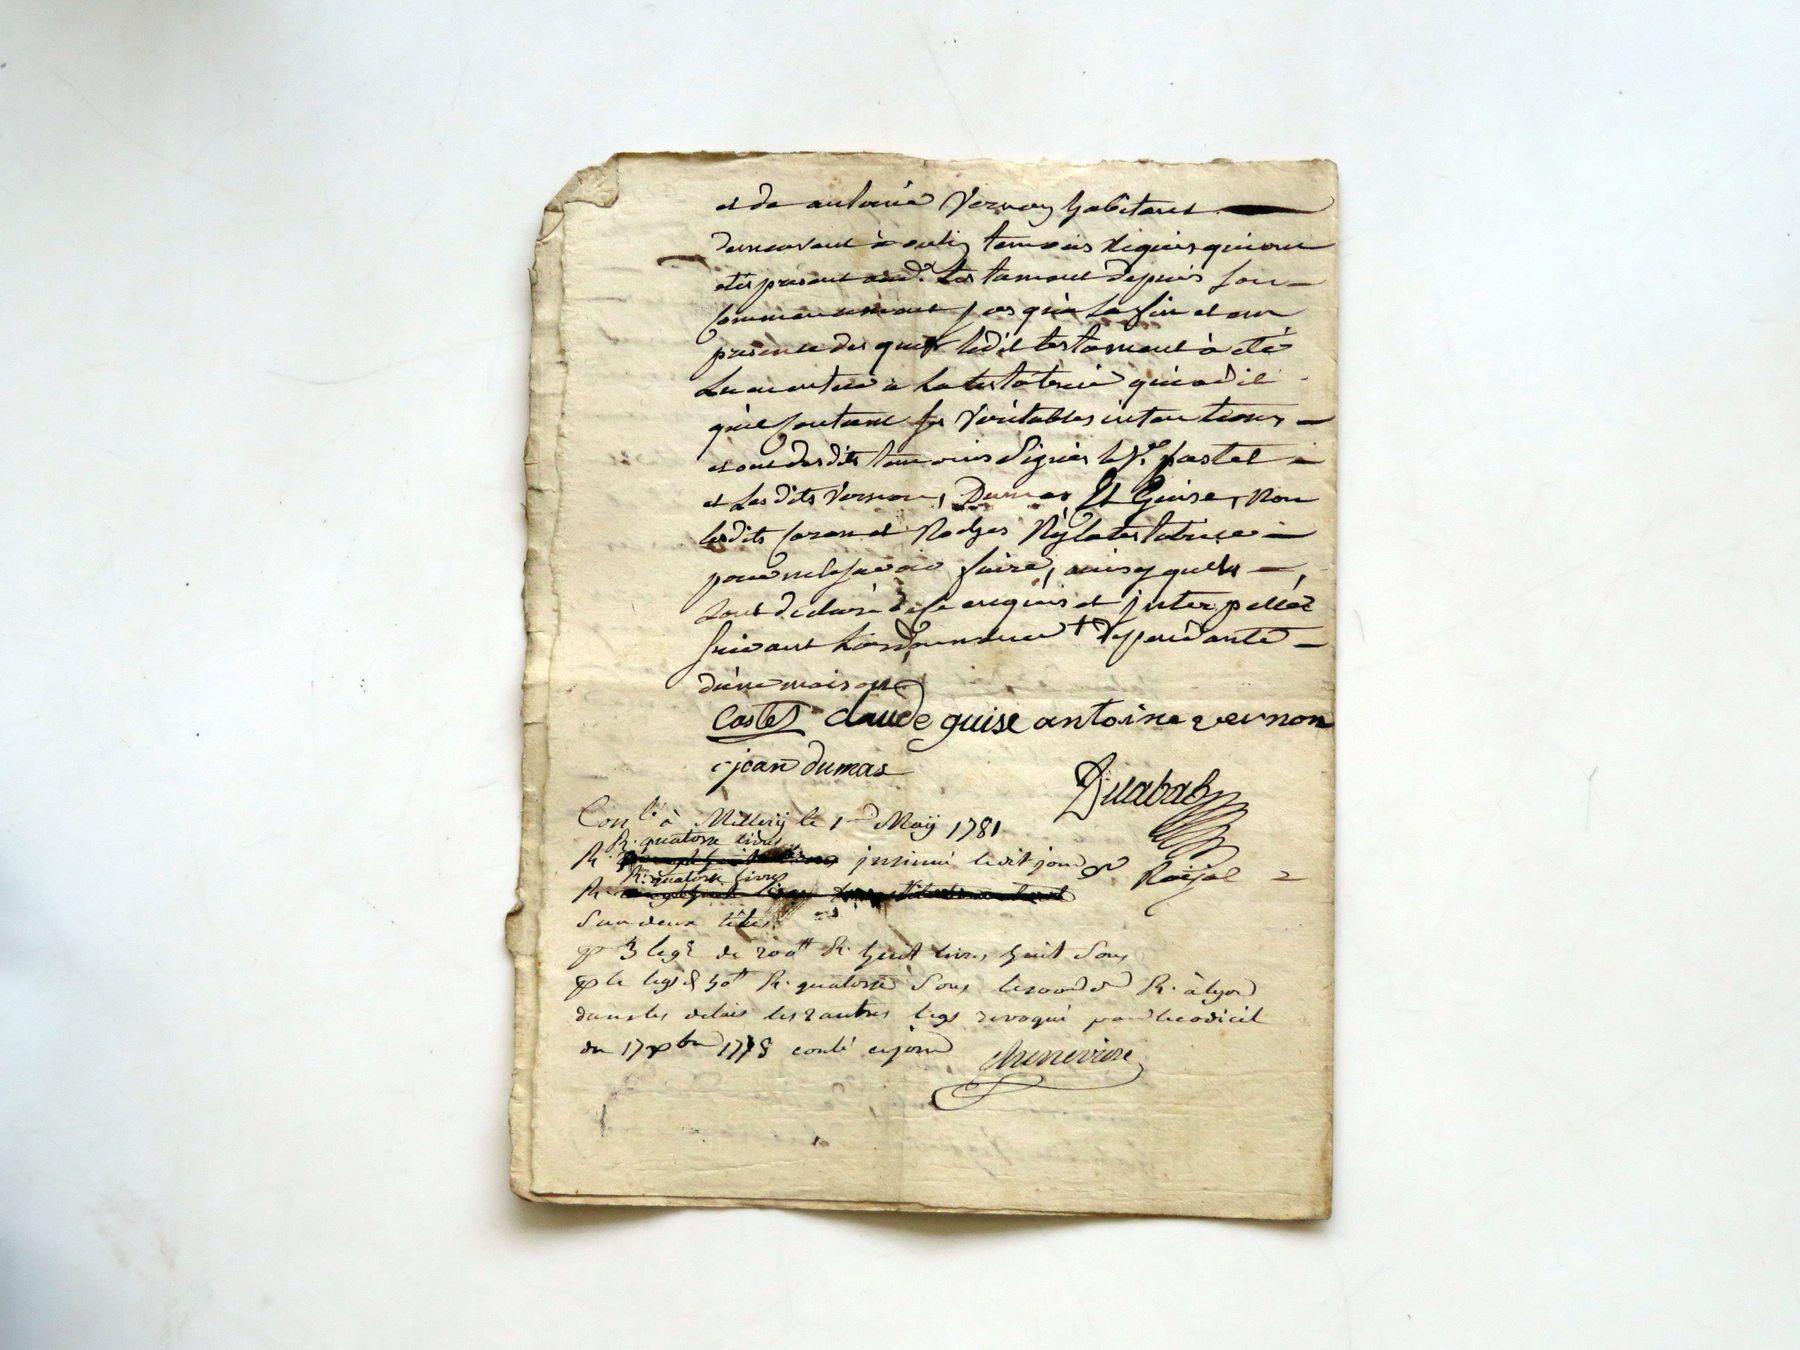 et de antoine Vernon habitants
demeurant à oulin temoins requis qui ont
étés present audt testament depuis son
commencement jusqu'à la fin et en
presence des quels ledit testament à été
Lu a la testatrice qui a dit
qu'il contient ses Veritables intentions
et ont desdits temoins Signés le Sr Castel
et Les dits Vernon, Dumas Et Guise, non
lesdits et Ny la testatrice
pour ne le savoir faire, ainsy quels
sont declaré de ce enquis et interpellés
suivant L'ordonnance + dependante
d'une maison
Castel claude guise antoine vernon
jean dumas
Duabab
Conlé à Millery le 1er May 1781
R. quatorze livres
R. insinué ledit jour Royal
R. quatorze livres
R.
Sur deux têtes
pr 3 legs de 200tt R. huit livres huit Sous
pr le legs de 50tt R. quatorze Sous R. à lyon
dans les delais les 2 autres legs revoqué par le codicil
du 17 xbre 1778 conlé ce jour
Chenevière